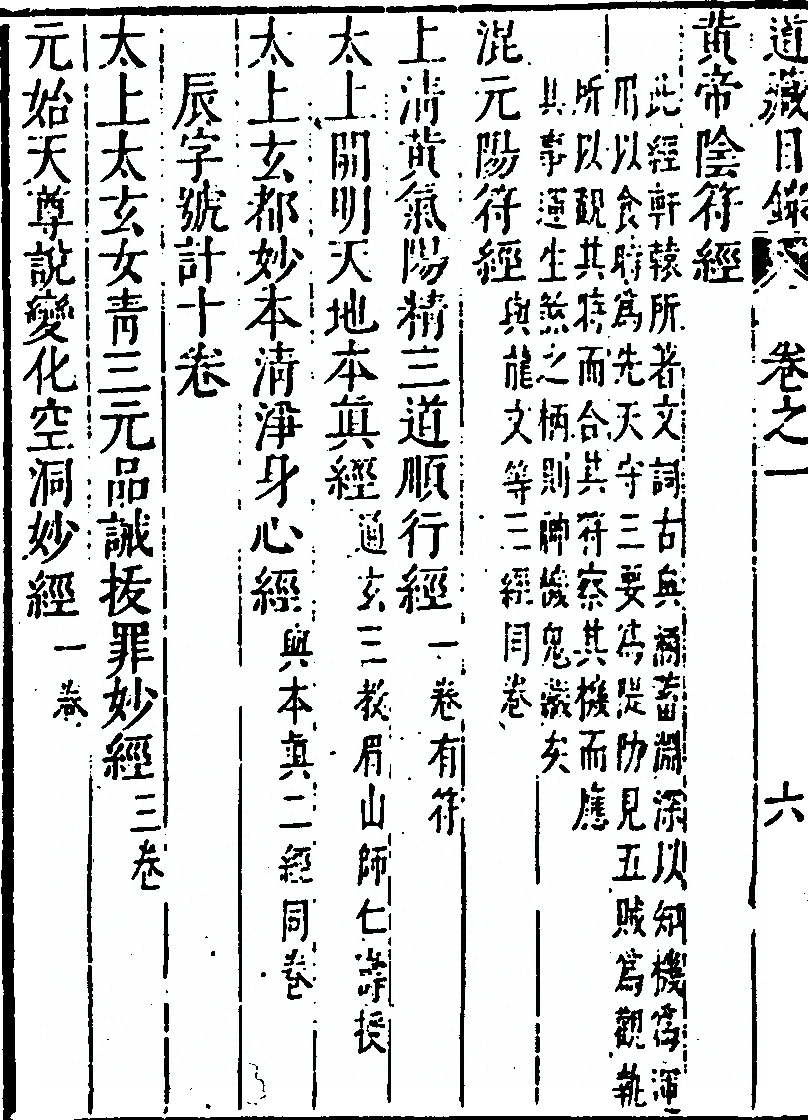 道藏目錄 卷之一 六
黃帝陰符經
此經軒轅所著文詞古奧涵蓄淵深以知機爲渾
用以食時爲先天守三要爲隄防見五賊爲觀執
所以觀其時而合其符察其機而應
其事運生煞之柄則神機鬼藏矣
混元陽符經 與龍文等三經同卷
上清黃氣陽精三道順行經 一卷有符
太上開明天地本眞經 通玄三教眉山師仁壽授
太上玄都妙本清淨身心經 與本眞二經同卷
辰字號計十卷
太上太玄女青三元品誡拔罪妙經 三卷
元始天尊說變化空洞妙經 一卷